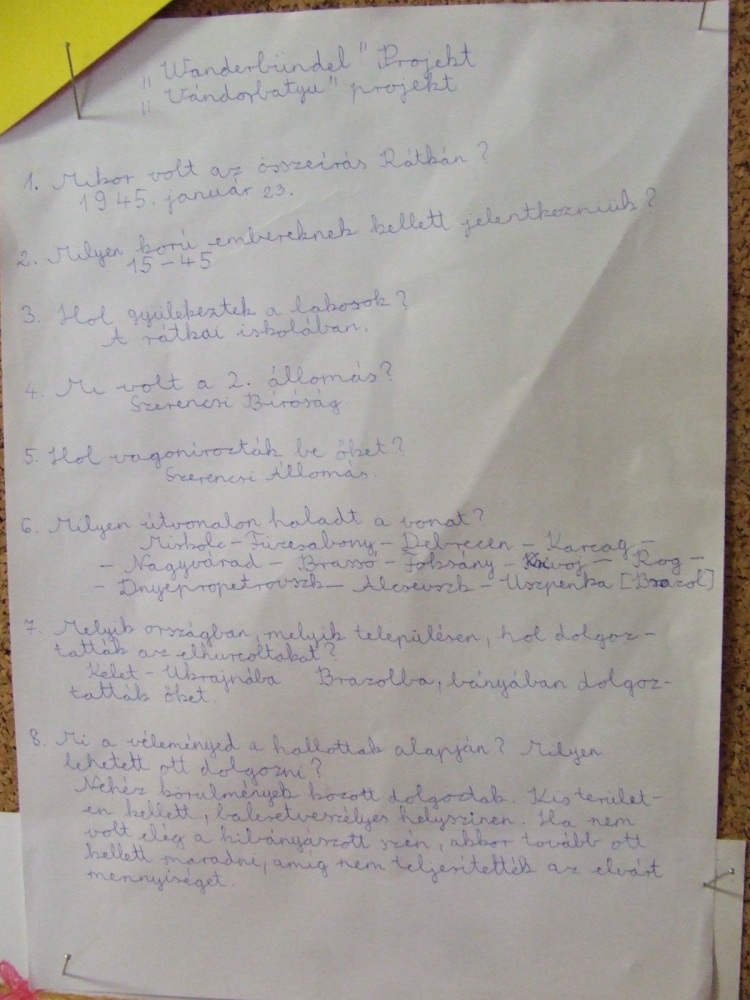 „Wanderbündel" Projekt
„Vándorbatyu" projekt
1. Mikor volt az összeírás Rátkán?
1945. január 23.
2. Milyen korú embereknek kellett jelentkezniük?
15-45
3. Hol gyülekeztek a lakosok?
A rátkai iskolában.
4. Mi volt a 2. állomás?
Szerencsi Bíróság
5. Hol vagonírozták be őket?
Szerencsi Állomás.
6. Milyen útvonalon haladt a vonat?
Miskolc - Füzesabony - Debrecen - Karcag -
- Nagyvárad - Brassó - Foksány - Krivoj - Rog -
- Dnyepropetrovszk - Alcsevszk - Uszpenka [Brazol]
7. Melyik országban, melyik településen, hol dolgoz-
tatták az elhurcoltakat?
Kelet - Ukrajnába Brazolba, bányában dolgoz-
tatták őket.
8. Mi a véleményed a hallottak alapján? Milyen
lehetett ott dolgozni?
Nehéz körülmények között dolgoztak. Kis terület-
en kellett, balesetveszélyes helyszínen. Ha nem
volt elég a kibányászott szén, akkor tovább ott
kellett maradni, amíg nem teljesítették az elvárt
mennyiséget.